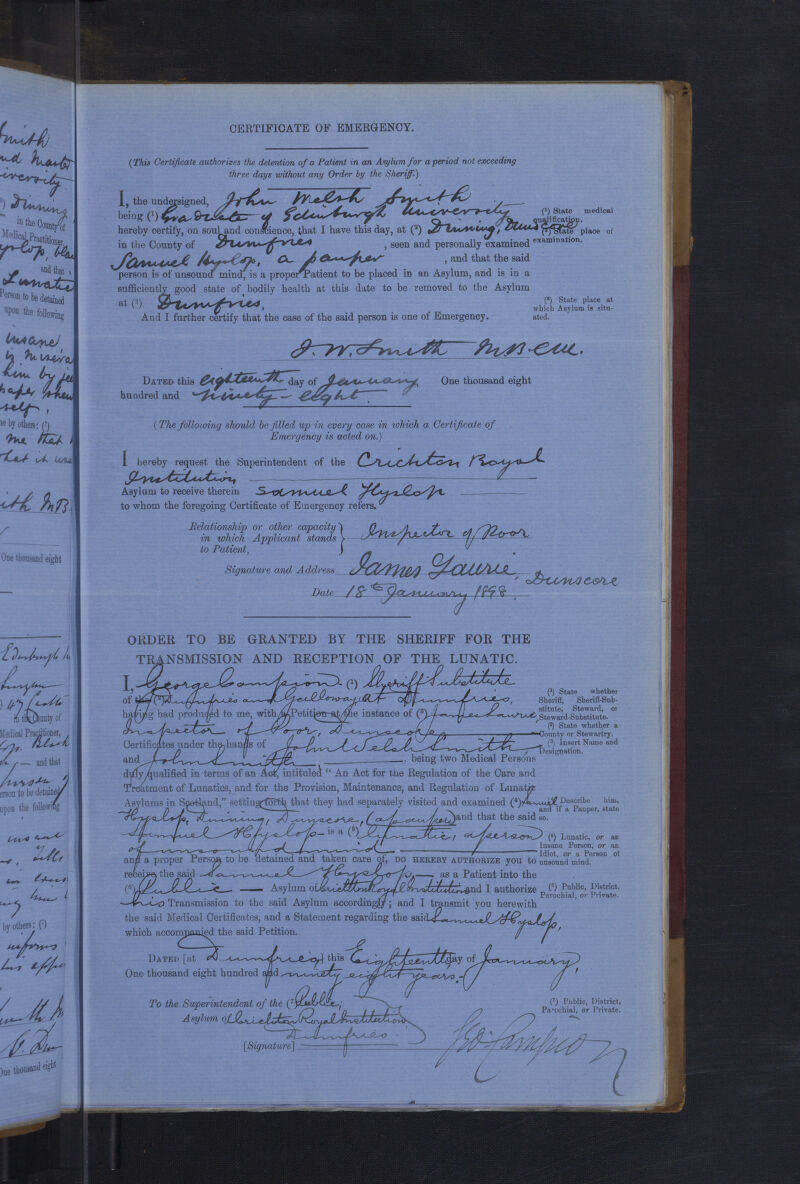 CERTIFICATE OF EMERGENCY.
(This Certificate authorizes the detention of a Patient in an Asylum for a period not exceeding
three days without any Order by the Sheriff.)
I, the undersigned, John Welsh Smith
being (¹) Graduate of Edinburgh University
(¹) State medical
qualification.
hereby certify, on soul and conscience, that I have this day, at (²) Dinning, Dunscore
(²) State place of
examination.
in the County of Dumfries, seen and personally examined
Samuel Hyslop, a pauper, and that the said
person is of unsound mind, is a proper Patient to be placed in an Asylum, and is in a
sufficiently good state of bodily health at this date to be removed to the Asylum
at (³) Dumfries.
(³) State place at
which Asylum is situ-
ated.
And I further certify that the case of the said person is one of Emergency.
J. W. Smith M.B.C.M.
DATED this eighteenth day of January One thousand eight
hundred and ninety-eight.
(The following should be filled up in every case in which a Certificate of
Emergency is acted on.)
I hereby request the Superintendent of the Crichton Royal
Institution
Asylum to receive therein Samuel Hyslop
to whom the foregoing Certificate of Emergency refers.
Relationship or other capacity
in which Applicant stands
to Patient,
Inspector of Poor
Signature and Address James Laurie, Dunscore
Date 18th January 1898.
ORDER TO BE GRANTED BY THE SHERIFF FOR THE
TRANSMISSION AND RECEPTION OF THE LUNATIC.
I, George Campion (¹) Sheriff Substitute
of the (²) Dumfries and Galloway at Dumfries,
having had produced to me, with a Petition at the instance of (³) James Laurie,
Inspector of Poor, Dunscore
Certificates under the hands of John Welsh Smith,
and John Smith, being two Medical Persons
(¹) State whether
Sheriff, Sheriff-Sub-
stitute, Steward, or
Steward-Substitute.
(²) State whether a
County or Stewartry.
(³) Insert Name and
Designation.
duly qualified in terms of an Act, intituled "An Act for the Regulation of the Care and
Treatment of Lunatics, and for the Provision, Maintenance, and Regulation of Lunatic
Asylums in Scotland," setting forth that they had separately visited and examined (⁴) Samuel
Hyslop, Dinning, Dunscore, (a pauper) and that the said
(⁴) Describe him,
and if a Pauper, state
so.
Samuel Hyslop is a (⁵) lunatic, a person
of unsound mind
(⁵) Lunatic, or an
Insane Person, or an
Idiot, or a Person of
unsound mind.
and a proper Person to be detained and taken care of, DO HEREBY AUTHORIZE YOU to
receive the said Samuel Hyslop, as a Patient into the
(⁶) Public Asylum Crichton Royal Institution and I authorize
(⁶) Public, District,
Parochial, or Private.
his Transmission to the said Asylum accordingly; and I transmit you herewith
the said Medical Certificates, and a Statement regarding the said Samuel Hyslop,
which accompanied the said Petition.
DATED [at Dumfries] this Eighteenth day of January,
One thousand eight hundred and ninety eight years.
To the Superintendent of the (⁷) Public,
(⁷) Public, District,
Parochial, or Private.
Asylum of Crichton Royal Institution
Dumfries.
[Signature] Geo. Campion
Smith
University
Dinning
in the County of
Medical Practitioner,
and that
Lunatic
Person to be detained
upon the following
insane
him by
self.
by others: (⁷)
me that
One thousand eight
in the County of
Medical Practitioner,
and that
person to be detained
upon the following
by others: (⁷)
informs
One thousand eight